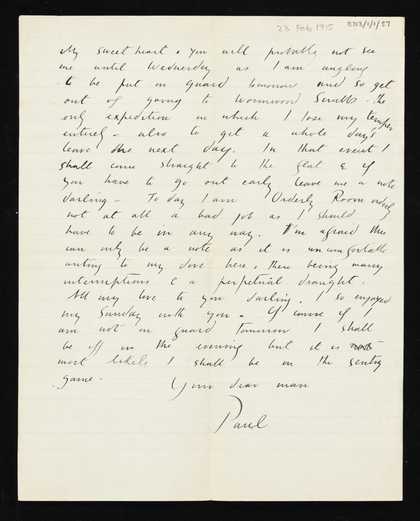 23 Feb 1915
My sweetheart. You will probably not see
me until Wednesday as I am angling
to be put on guard tomorrow and so get
out of going to Wormwood Scrubbs - the
only expedition on which I lose my temper
entirely - also to get a whole day's
leave the next day. In that event I
shall come straight to the flat & if
you have to go out early leave me a note
darling - To day I am Orderly Room orderly
not at all a bad job as I should
have to be in any way. I'm afraid this
can only be a note as it is uncomfortable
writing to my dove here, there being many
interruptions & a perpetual draught.
All my love to you darling. I so enjoyed
my Sunday with you. Of course if I
am not on guard tomorrow I shall
be off in the evening but it is
most likely I shall be on the sentry
game.
Your dear man
Paul